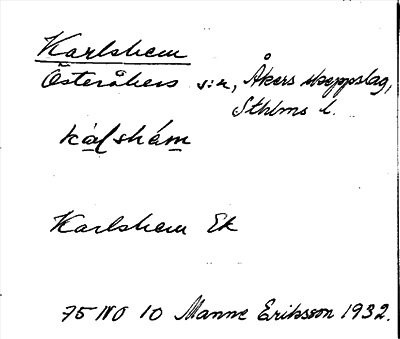 Karlshem
Österåkers s:n, Åkers skeppslag,
Sthlms l.
kálshém
Karlshem Ek
75 NO 10 Manne Eriksson 1932.